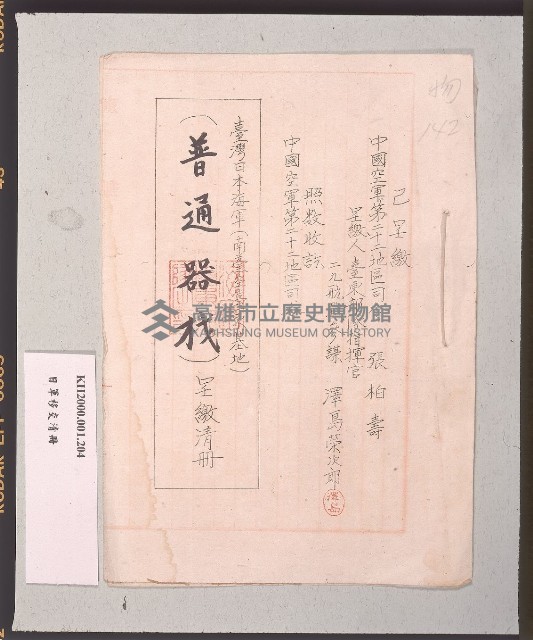 物
142
已呈繳
中國空軍第二十二地區司 張柏壽
呈繳人 臺東 指揮官
二九航 參謀 澤島榮次郎
照数收訖
中國空軍第二十二地區司
臺灣日本海軍(南臺 基地)
(普通器材)
呈繳清冊
高雄市立歷史博物館
KAOHSIUNG MUSEUM OF HISTORY
KH2000.001.204
日軍移交清冊
KODAK